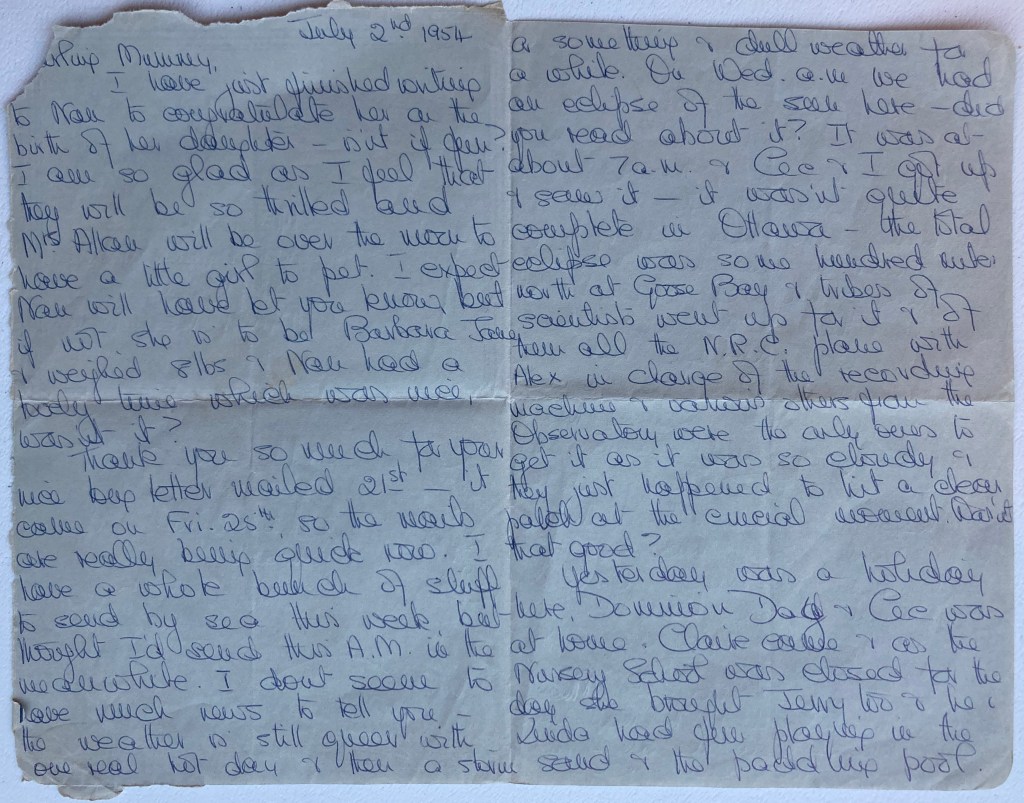 July 2nd 1954
Mummy,
I have just finished writing
to Nan to congratulate her on the
birth of her daughter – isn't it fun?
I am so glad as I feel that
they will be so thrilled and
Mrs Allan will be over the moon to
have a little girl to pet. I expect
Nan will have let you know but
if not she is to be Barbara Jane
& weighed 8lbs & Nan had a
lovely time which was nice,
wasn't it?
Thank you so much for your
nice long letter mailed 21st – it
came on Fri. 25th so the mails
are really being quick now. I
have a whole bunch of stuff
to send by sea this week but
thought I'd send this A.M. in the
meanwhile. I don't seem to
have much news to tell you –
the weather is still queer with
one real hot day & then a storm
or something & dull weather for
a while. On Wed. a.m we had
an eclipse of the sun here – did
you read about it? It was at
about 7a.m. & Cec & I got up
& saw it – it wasn't quite
complete in Ottawa – the total
eclipse was some hundred miles
north at Goose Bay & tribes of
scientists went up for it & of
them all the N.R.C. plane with
Alex in charge of the recording
machine & various others from the
Observatory were the only ones to
get it as it was so cloudy &
they just happened to hit a clear
patch at the crucial moment. Wasn't
that good?
Yesterday was a holiday
here, Dominion Day & Cec was
at home. Claire came & as the
Nursery School was closed for the
day she brought Jerry too & he &
Linda had fun playing in the
sand & the paddling pool.